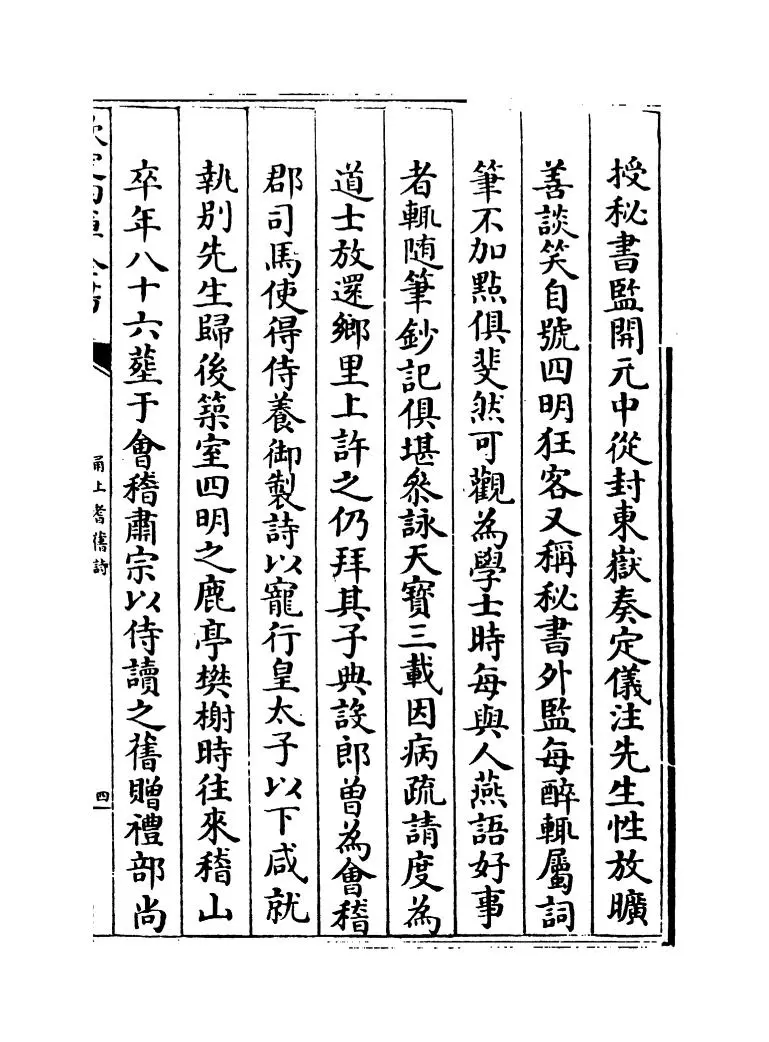 授秘書監開元中從封東嶽奏定儀注先生性放曠
善談笑自號四明狂客又稱秘書外監每醉輒屬詞
筆不加點俱斐然可觀為學士時每與人燕語好事
者輒随筆鈔記俱堪叅詠天寶三載因病疏請度為
道士放還鄉里上許之仍拜其子典設郎曽為會稽
郡司馬使得侍養御製詩以寵行皇太子以下咸就
執別先生歸後築室四明之鹿亭樊榭時往來稽山
卒年八十六塟于會稽肅宗以侍讀之舊贈禮部尚
甬上耆舊詩
四